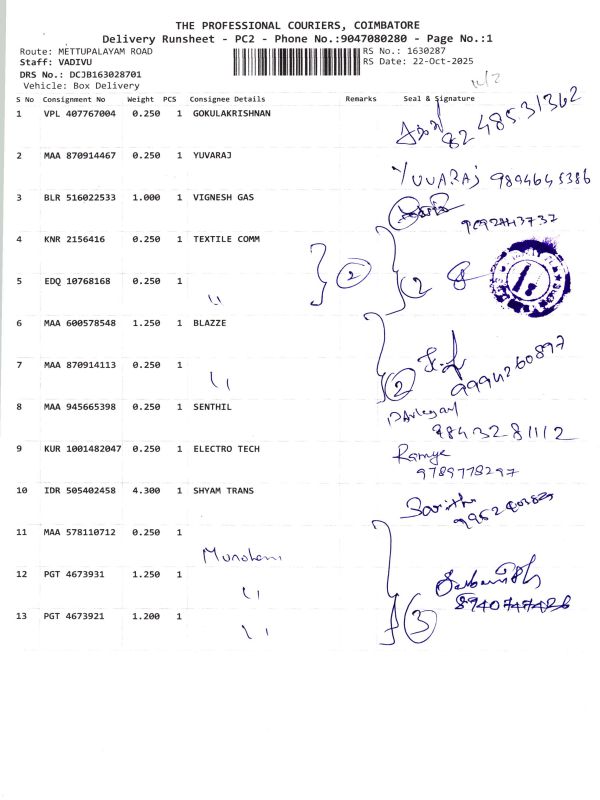 THE PROFESSIONAL COURIERS, COIMBATORE
Delivery Runsheet - PC2 - Phone No.:9047080280 - Page No.:1
Route: METTUPALAYAM ROAD
RS No.: 1630287
Staff: VADIVU
RS Date: 22-Oct-2025
DRS No.: DCJB163028701
Vehicle: Box Delivery
S No Consignment No Weight PCS Consignee Details Remarks Seal & Signature
1 VPL 407767004 0.250 1 GOKULAKRISHNAN
82 48531362
2 MAA 870914467 0.250 1 YUVARAJ
YUVARAJ 9894645386
3 BLR 516022533 1.000 1 VIGNESH GAS
4 KNR 2156416 0.250 1 TEXTILE COMM
5 EDQ 10768168 0.250 1
2 2
6 MAA 600578548 1.250 1 BLAZZE
7 MAA 870914113 0.250 1
2 9994260897
8 MAA 945665398 0.250 1 SENTHIL
9843281112
9 KUR 1001482047 0.250 1 ELECTRO TECH
Ramya
9789778297
10 IDR 505402458 4.300 1 SHYAM TRANS
11 MAA 578110712 0.250 1
12 PGT 4673931 1.250 1
8940747426
13 PGT 4673921 1.200 1
3